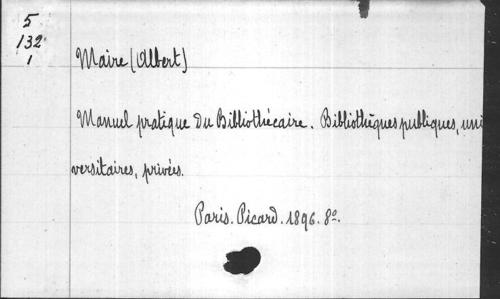 5
132
1
Maire (Albert)
Manuel pratique du Bibliothécaire. Bibliothèques publiques, uni
versitaires, privées.
Paris. Picard. 1896. 8º.